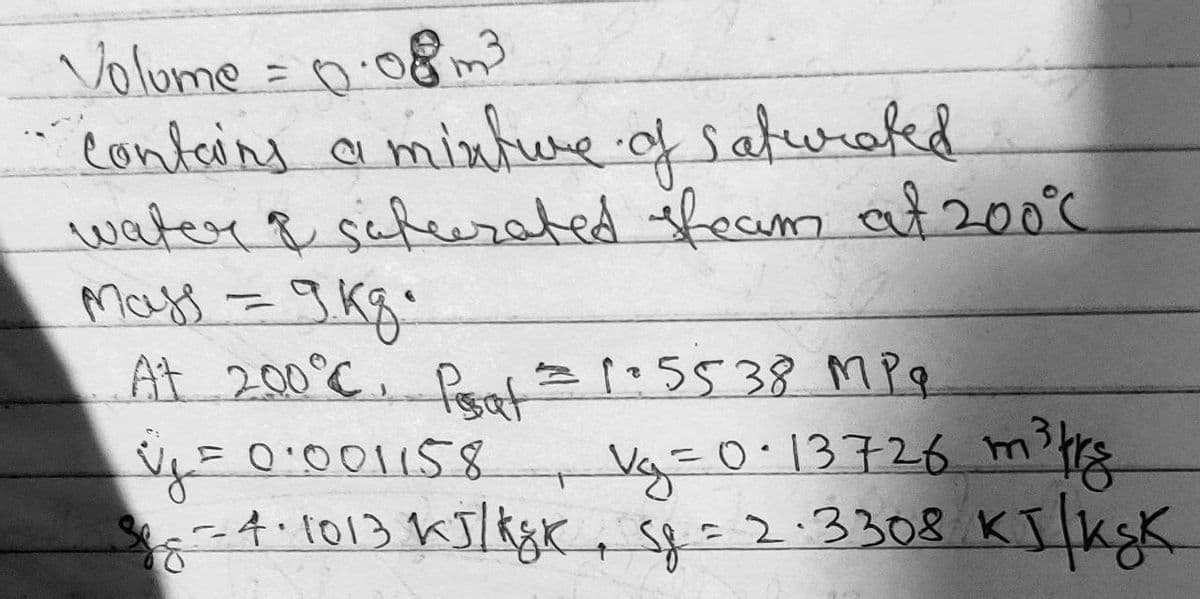 Volume = 0.08 m³
Contains a mixture of saturated
water & saturated steam at 200°C
Mass = 9 Kg.
At 200°C, Psat = 1.5538 MPa
Vf = 0.001158 , Vg = 0.13726 m³/kg
Sfg = 4.1013 KJ/kgK , Sf = 2.3308 KJ/KgK